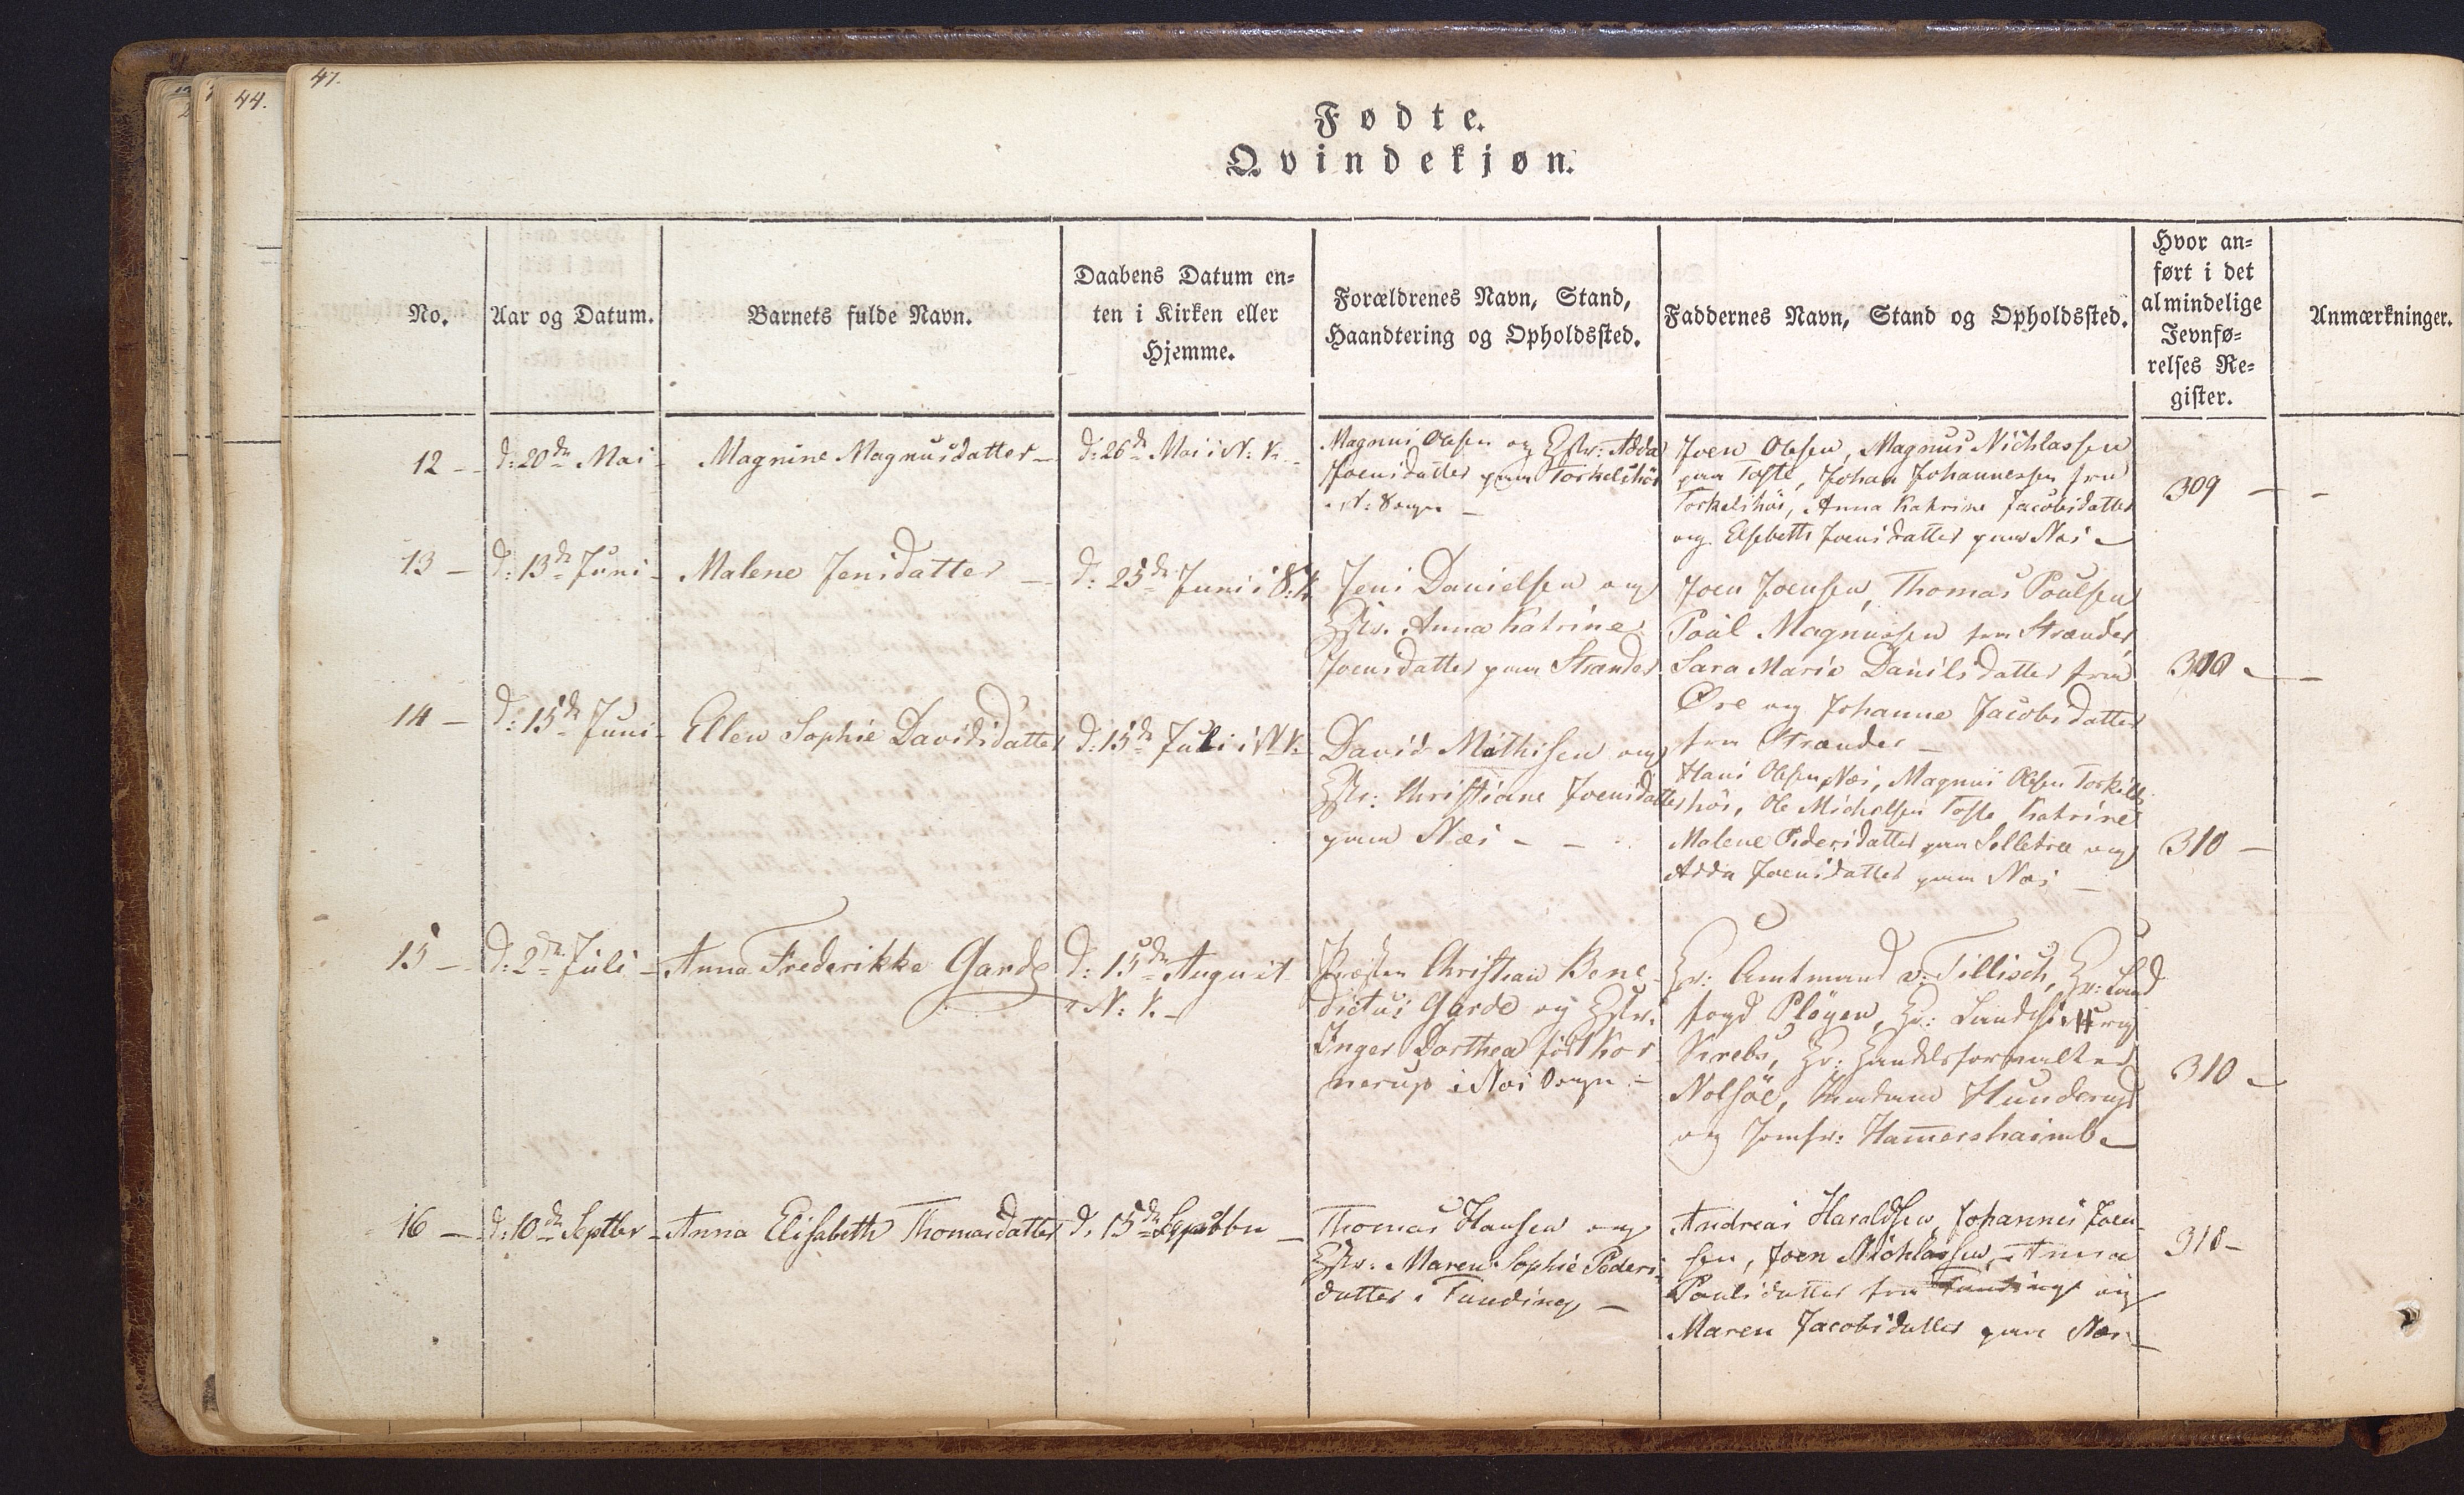 47.
44.
Fødte.
Qvindekjøn.
No.
Aar og Datum.
Barnets fulde Navn.
Daabens Datum en-
ten i Kirken eller
Hjemme.
Forældrenes Navn, Stand,
Haandtering og Opholdssted.
Faddernes Navn, Stand og Opholdssted.
Hvor an-
ført i det
almindelige
Jevnfø-
relses Re-
gister.
Anmærkninger.
12 -
d: 20de Mai -
Magnine Magnusdatter -
d: 26de Mai i N: K. -
Magnus Olesen og Hstr: Adda
Joensdatter paa Torkelshöi
i N: Sogn -
Joen Olesen, Magnus Nichlassen
paa Tofte, Johan Johannessen fra
Torkelshöi, Anna Katrine Jacobsdatter
og Elsebeth Joensdatter paa Næs -
309 -
13 -
d: 13de Juni -
Malene Jensdatter -
d: 25de Juni i S: K.
Jens Danielsen og
Hstr. Anna Katrine
Joensdatter paa Strænder
Joen Joensen, Thomas Poulsen,
Poul Magnussen fra Strænder,
Sara Maria Danilsdatter fra
Øre og Johanne Jacobsdatter
fra Strænder -
310 -
14 -
d: 15de Juni -
Ellen Sophie Davidsdatter
d: 15de Juli i N K.
David Mathisen og
Hstr: Christiane Joensdatter
paa Næs - -
Hans Olesen Næs, Magnus Olesen Torkels
höi, Ole Michelsen Tofte Katrine
Malene Pedersdatter paa Selletræ og
Adda Joensdatter paa Næs -
310 -
15 -
d: 2den Juli -
Anna Frederikke Garde
d: 15de August
i N: K. -
Præsten Christian Bene-
dictus Garde og Hstr.
Inger Dorthea föd Kor-
nerup i Næs Sogn -
Hr: Amtmand v: Tillisch, Hr: Land
fogd Plöyen, Hr: Landchirurg
Krebs, Hr: Handelsforvalter
Nolsöe, Madame Hunderup
og Jomfr: Hamershaimb -
310 -
16 -
d: 10de Septbr -
Anna Elisabeth Thomasdatter
d. 15de Septbr -
Thomas Hansen og
Hstr: Maren Sophie Peders-
datter i Funding -
Andreas Haraldsen, Johannes Joen-
sen, Joen Nichlassen, Anna
Poulsdatter fra Funding og
Maren Jacobsdatter paa Næs -
310 -